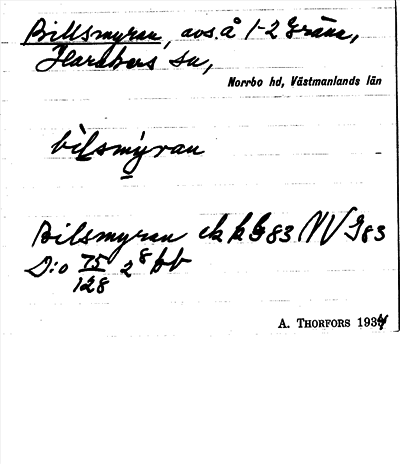 Billsmyran, avs. å 1-2 Gräna,
Haraker sn,
Norrbo hd, Västmanlands län
bìlsmýran
Bilsmyran ekk G83 NV G83
D:o 75/128 2⁸ bb
A. THORFORS 1934